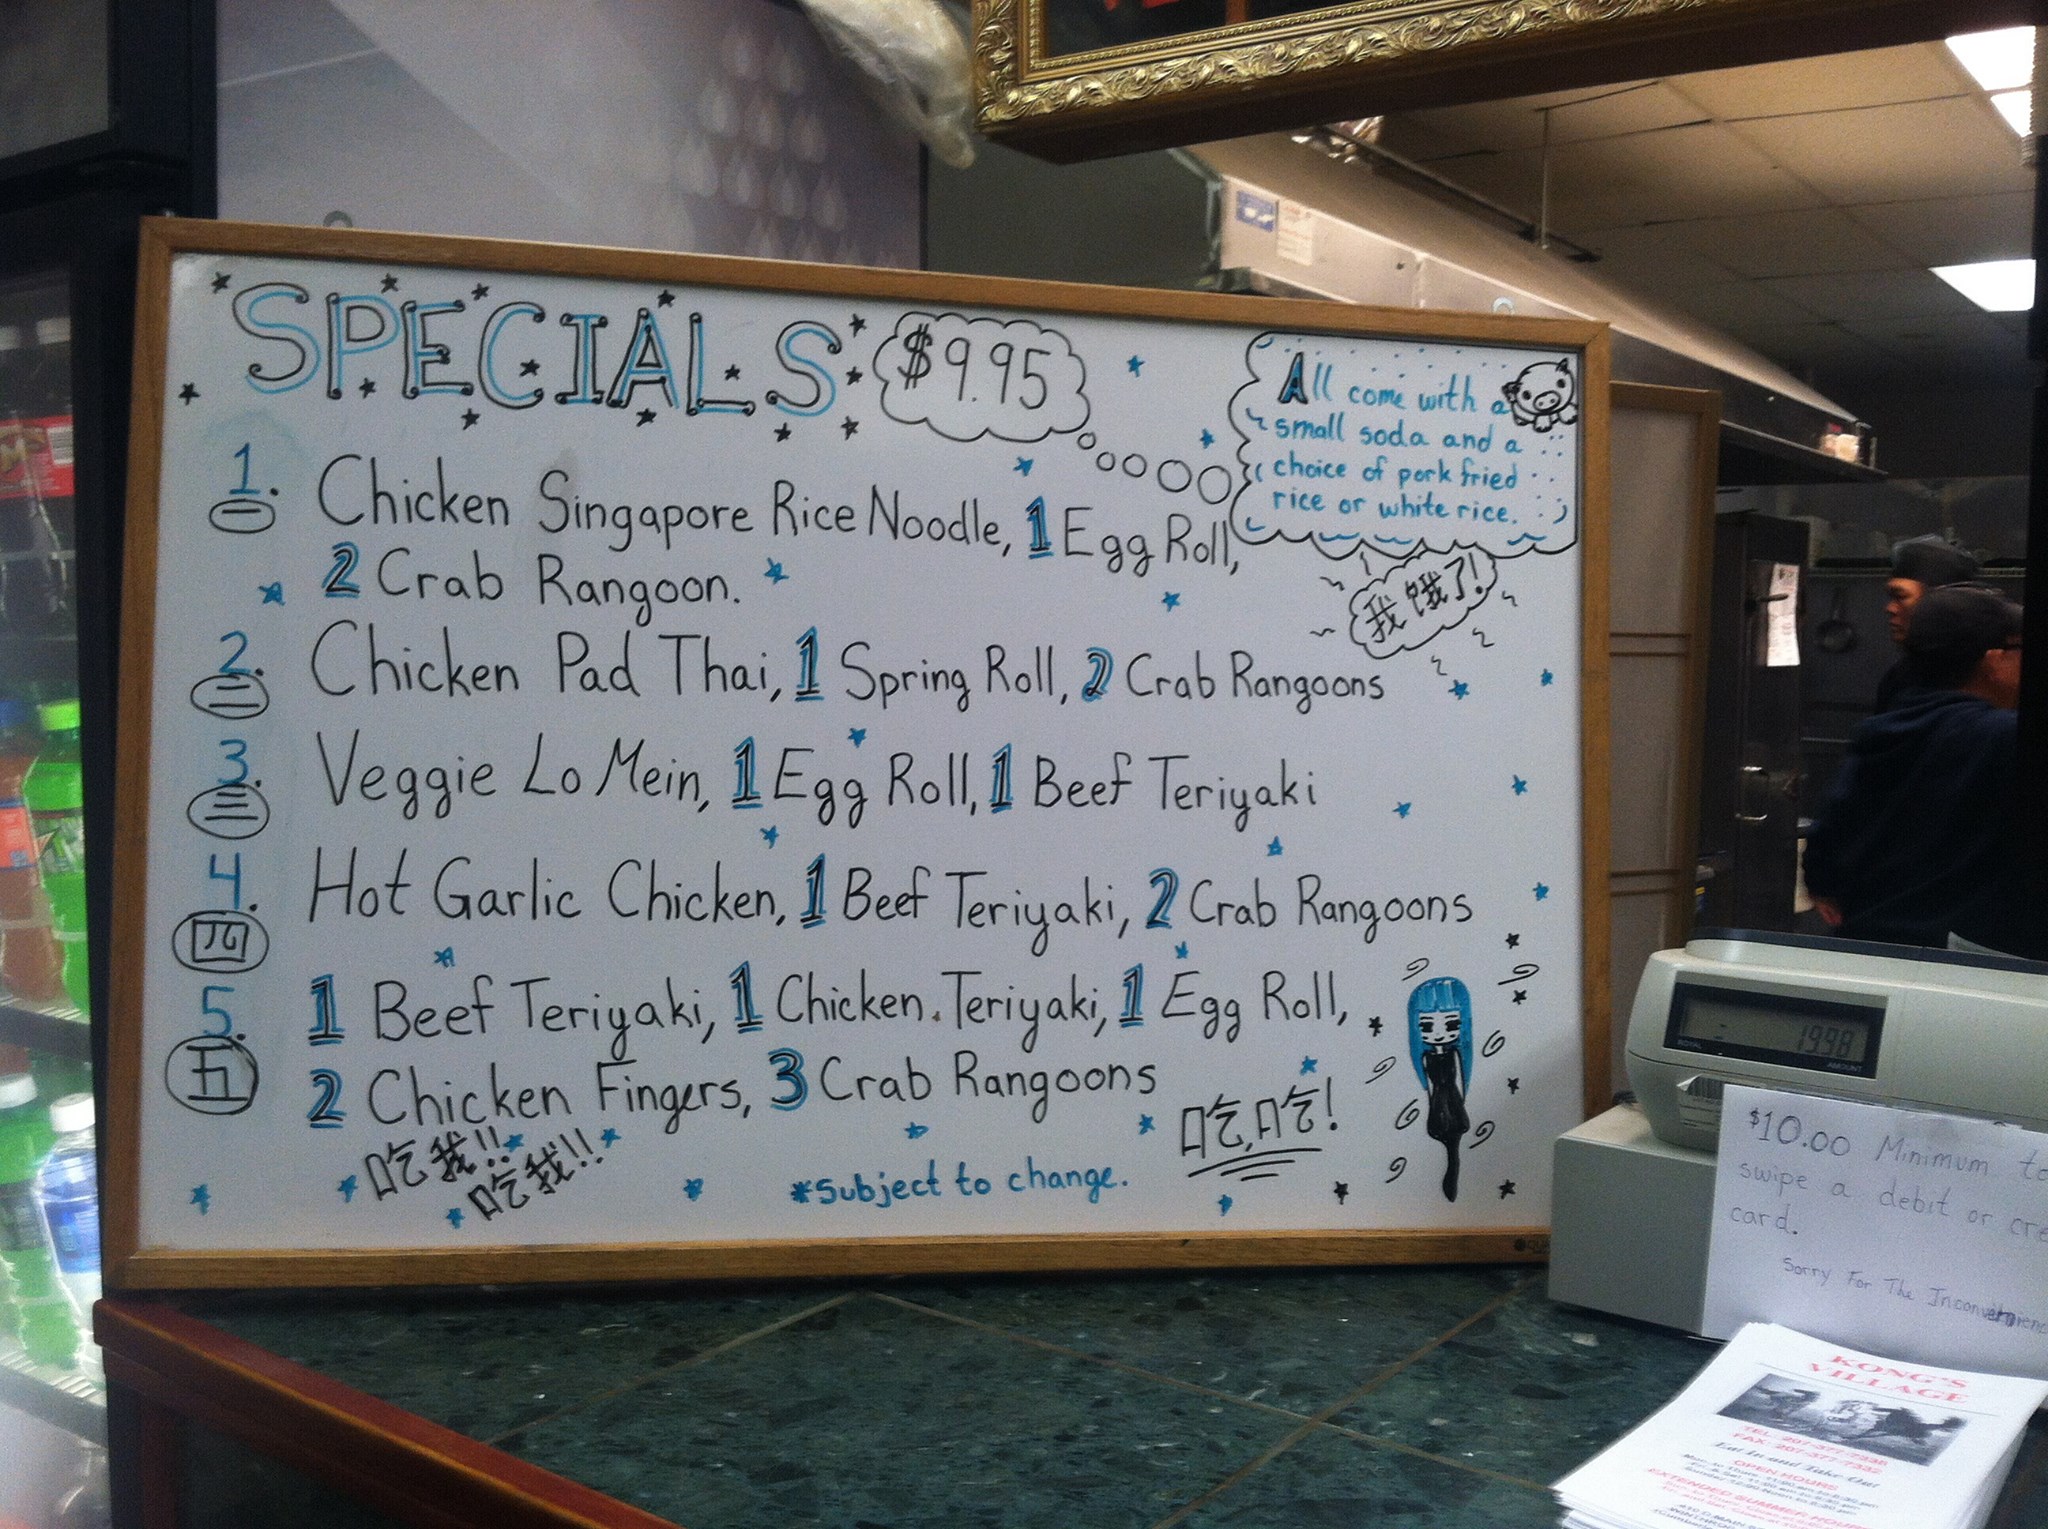 SPECIALS
$9.95
All come with a
small soda and a
choice of pork fried
rice or white rice.
我饿了!
1. 一 Chicken Singapore Rice Noodle, 1 Egg Roll,
2 Crab Rangoon.
2. 二 Chicken Pad Thai, 1 Spring Roll, 2 Crab Rangoons
3. 三 Veggie Lo Mein, 1 Egg Roll, 1 Beef Teriyaki
4. 四 Hot Garlic Chicken, 1 Beef Teriyaki, 2 Crab Rangoons
5. 五 1 Beef Teriyaki, 1 Chicken Teriyaki, 1 Egg Roll,
2 Chicken Fingers, 3 Crab Rangoons
吃我!!
吃我!!
*Subject to change.
吃,吃!
19.98
TOTAL
AMOUNT
$10.00 Minimum to
swipe a debit or cre
card.
Sorry For The
KONG'S
VILLAGE
TEL: 207-377-7338
FAX: 207-377-7332
Eat In and Take Out
OPEN HOURS
EXTENDED SUMMER HOUR